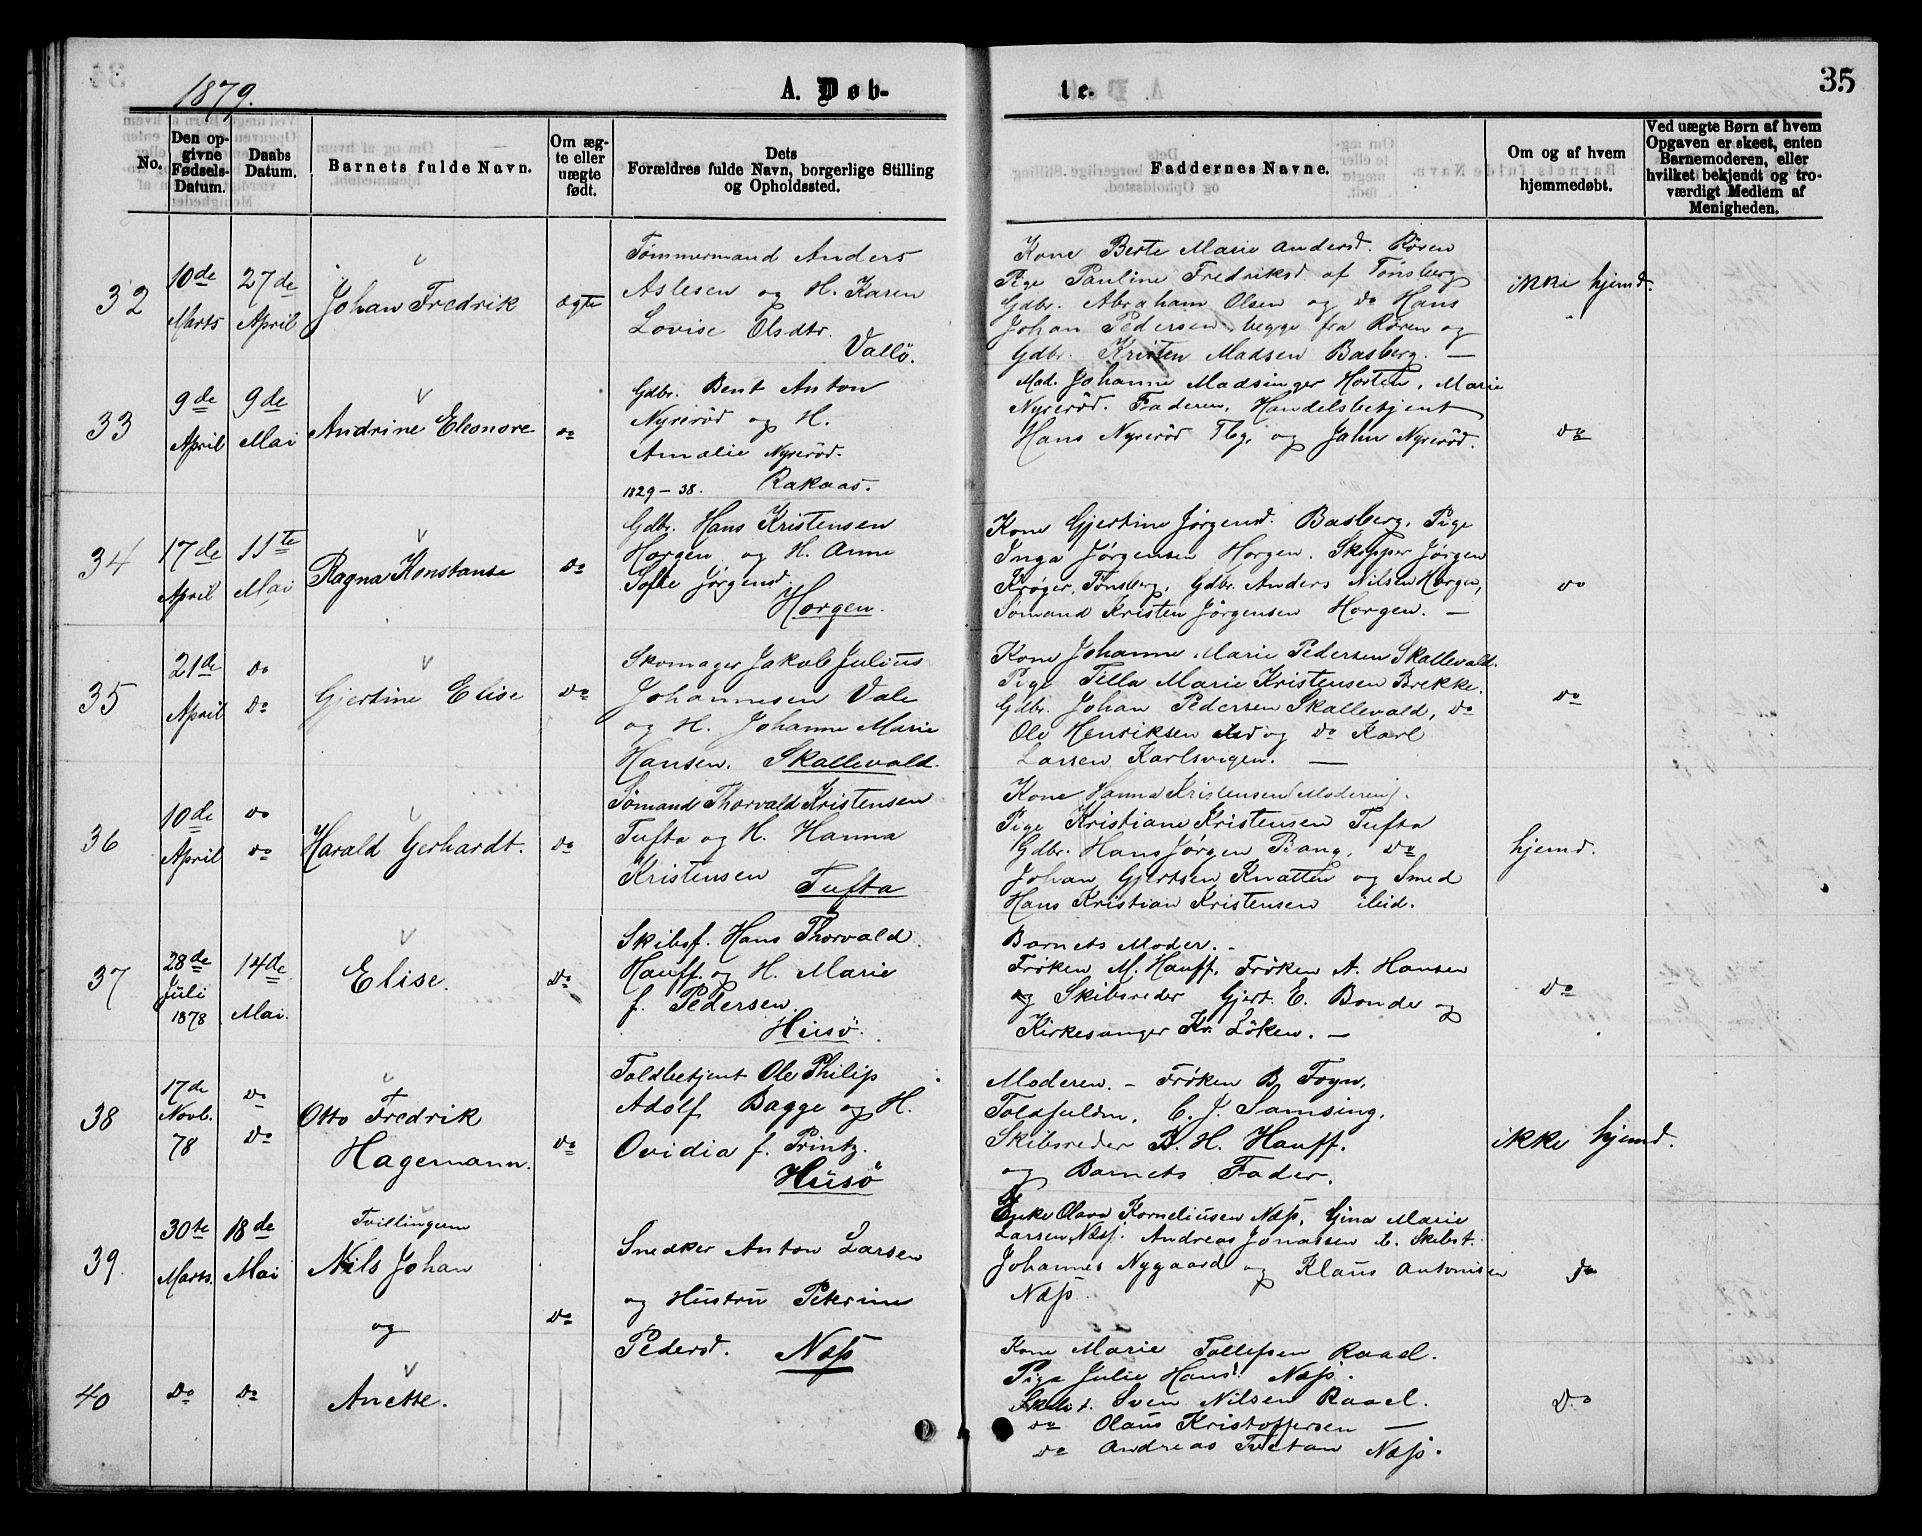 1879.
A. Døb-
te.
35
No.
Den opgivne Fødsels-Datum.
Daabs Datum.
Barnets fulde Navn.
Om ægte eller uægte født.
Dets Forældres fulde Navn, borgerlige Stilling og Opholdssted.
Faddernes Navne.
Om og af hvem hjemmedøbt.
Ved uægte Børn af hvem Opgaven er skeet, enten Barnemoderen, eller hvilket bekjendt og troværdigt Medlem af Menigheden.
32
10de Marts
27de April
Johan Fredrik
ægte
Tømmermand Anders
Aslesen og H. Karen
Lovise Olsdtr.
Vallö.
Kone Berte Marie Andersd. Røren
Pige Pauline Fredriksd af Tönsberg
Gdbr. Abraham Olsen og do Hans
Johan Pedersen, begge fra Røren og
Gdbr. Kristen Madsen Basberg. —
ikke hjemd.
33
9de April
9de Mai
Andrine Eleonore
do
Gdbr. Bent Anton
Nyrerød og H.
Amalie Nyrerød.
1829-38. Rakaas.
Mad. Johanne Madsinger Horten, Marie
Nyrerød. Faderen, Handelsbetjent
Hans Nyrerød Tbg, og Jahn Nyrerød.
do
34
17de April
11te Mai
Ragna Konstanse
do
Gdbr. Hans Kristensen
Horgen og H. Anne
Sofie Jørgensd.
Horgen.
Kone Gjertine Jørgensd. Basberg, Pige
Inga Jørgensen Horgen. Skipper Jørgen
Krøger, Tønsberg, Gdbr. Anders Nilsen Horgen,
Sømand Kristen Jörgensen Horgen. —
do
35
21de April
do do
Gjertine Elise
do
Skomager Jakob Julius
Johannesen Vale
og H. Johanne Marie
Hansen. Skallevald.
Kone Johanne Marie Pedersen Skallevald.
Pige Tilla Marie Kristensen Brekke.
Gdbr. Johan Pedersen Skallevald, do
Ole Henriksen og do Karl
Larsen Karlsvigen. —
do
36
10de April
do do
Harald Gerhardt.
do
Sömand Thorvald Kristensen
Tufta og H. Hanna
Kristensen Tufta
Kone Hanna Kristensen (Moderen).
Pige Kristiane Kristensen Tufta
Gdbr. Hans Jørgen Bang, do
Johan Gjertsen Knatten og Smed
Hans Kristian Kristensen ibid.
hjemd.
37
28de Juli 1878
14de Mai.
Elise.
do
Skibsf. Hans Thorvald
Hauff og H. Marie
f. Pedersen.
Husö.
Barnets Moder. -
Frøken M. Hauff, Frøken A. Hansen
og Skibsreder Gjert. E. Bonde og
Kirkesanger Kr. Löken. —
do
38
17de Novb. 78
do do
Otto Fredrik
Hagemann.
do
Toldbetjent Ole Philip
Adolf Bagge og H.
Ovidia f. Printz.
Husö
Moderen. - Frøken B. Foyn,
C. J. Samsing,
Skibsreder B. H. Hauff.
og Barnets Fader.
ikke hjemd.
39.
30te Marts.
18de Mai
Tvillingerne
Nils Johan
og
do
Snedker Anton Larsen
og Hustru Peterine
Pedersd. Næss
Enke Olava Korneliusen Næss, Gina Marie
Larsen Næss. Andreas Jonassen E. Skibst.
Johannes Nygaard og Klaus Antonisen
Næss.
do
40
do
do
Anette.
Kone Marie Tollefsen Raael.
Pige Julie Hans! Næss.
Skibst. Sven Nilsen Raael.
do Olaus Kristoffersen —
do Andreas Tvetan Næss.
do